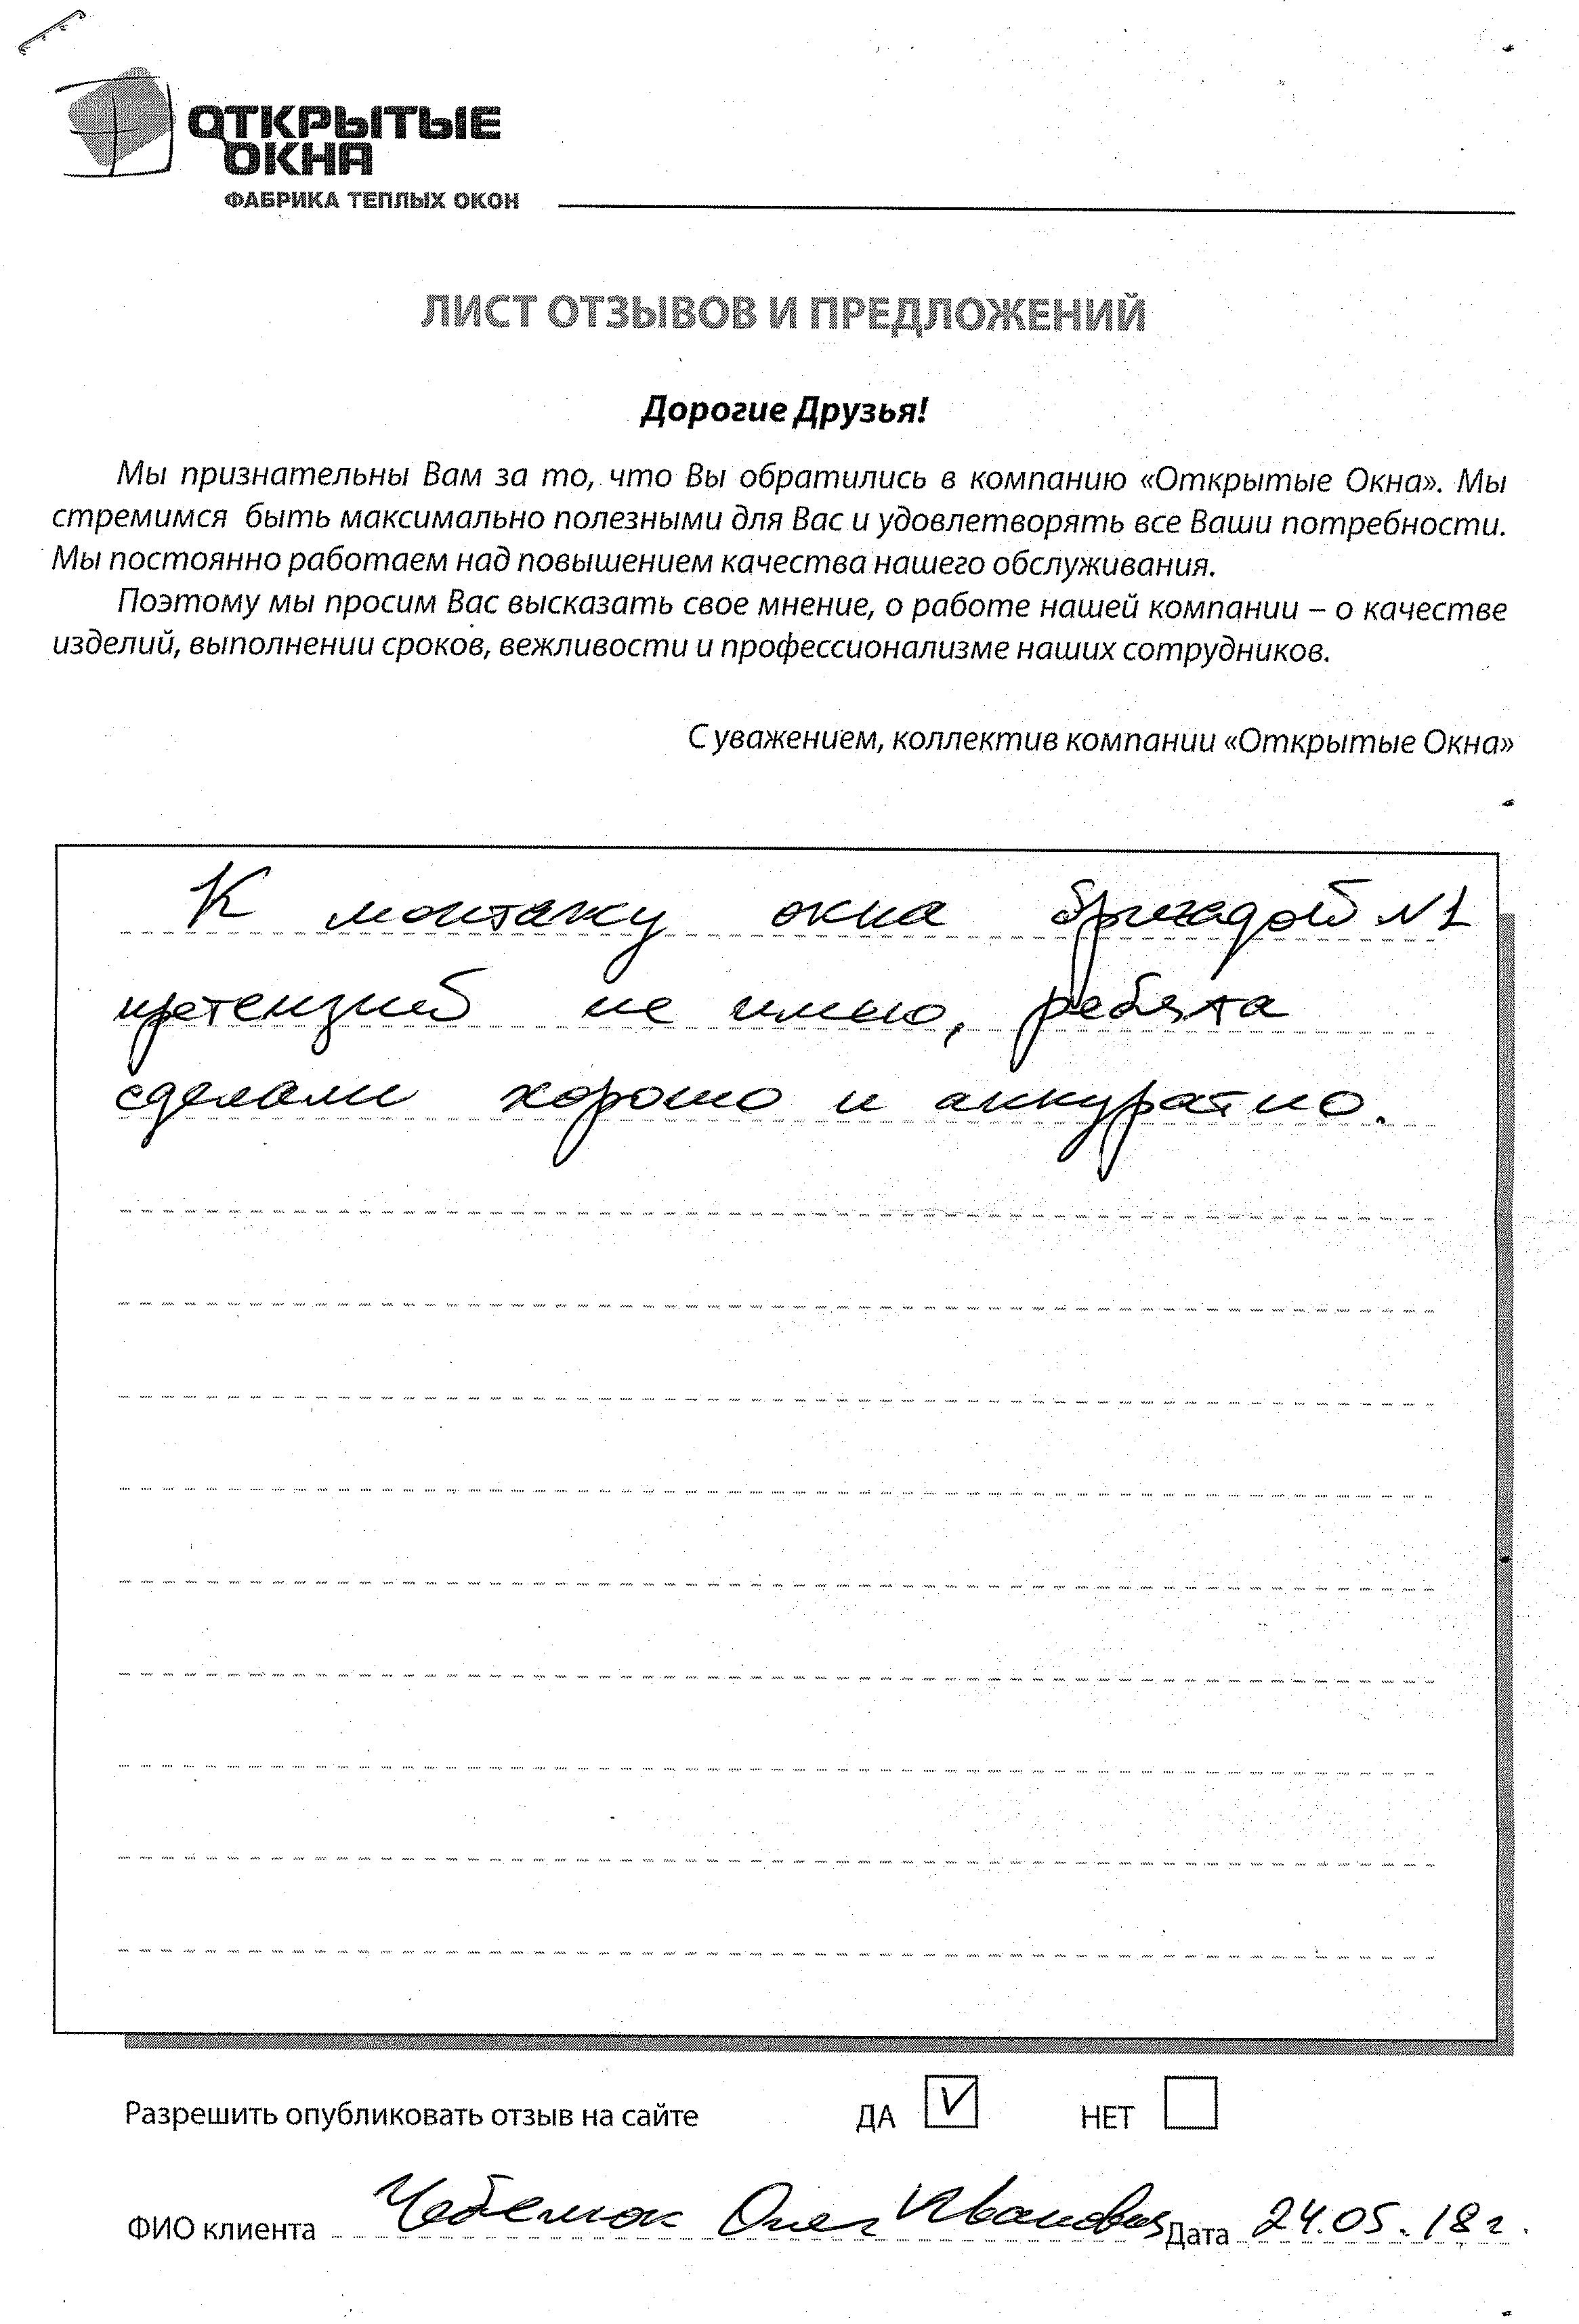 ОТКРЫТЫЕ
ОКНА
ФАБРИКА ТЕПЛЫХ ОКОН
ЛИСТ ОТЗЫВОВ И ПРЕДЛОЖЕНИЙ
Дорогие Друзья!
Мы признательны Вам за то, что Вы обратились в компанию «Открытые Окна». Мы
стремимся быть максимально полезными для Вас и удовлетворять все Ваши потребности.
Мы постоянно работаем над повышением качества нашего обслуживания.
Поэтому мы просим Вас высказать свое мнение, о работе нашей компании – о качестве
изделий, выполнении сроков, вежливости и профессионализме наших сотрудников.
С уважением, коллектив компании «Открытые Окна»
К монтажу окна бригадой №1
претензий не имею, ребята
сделали хорошо и аккуратно.
Разрешить опубликовать отзыв на сайте ДА V НЕТ
ФИО клиента Олег Иванович Дата 24.05.18г.